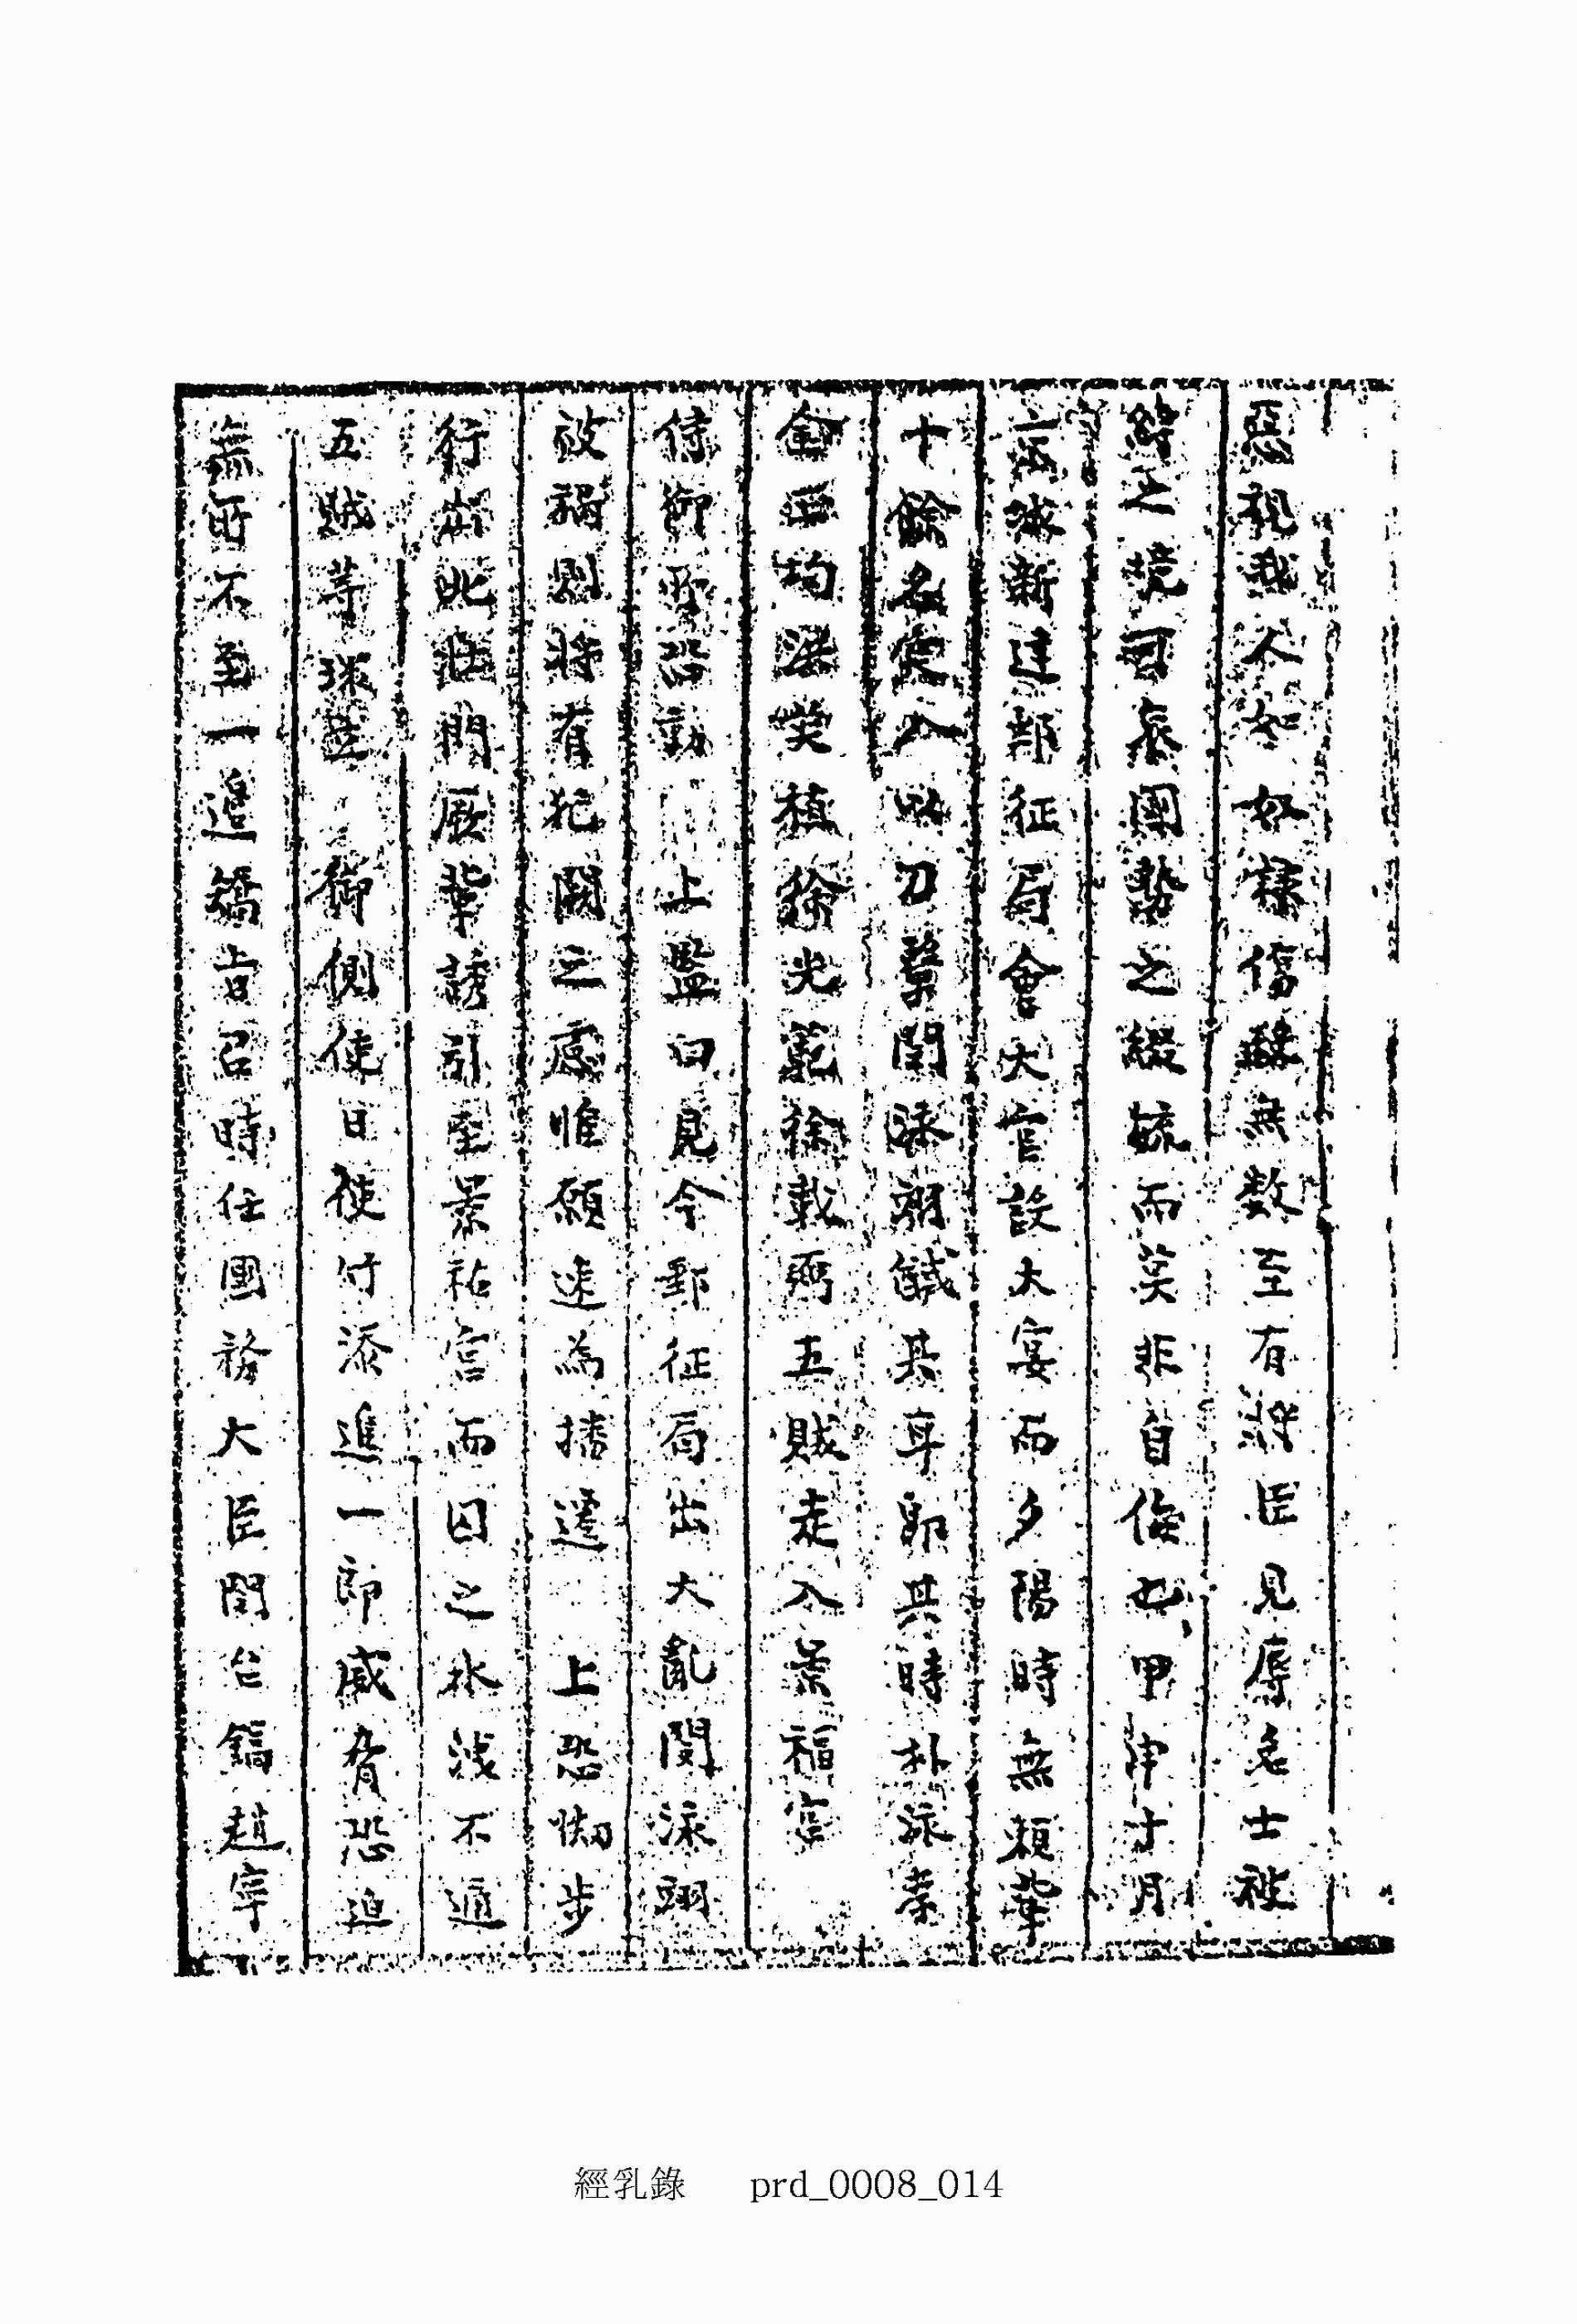 惡視我人如奴隸倩雠無數至有將臣見辱名士被
辭之境習泰團勢之綴旒而莫非自作也甲申十月
新建郵征局會大官設大宴而夕陽時無賴輩
十餘名突入以刀擊閔泳翊馘其耳即其時朴泳孝
金玉均洪英植徐光範徐載弼五賊走入景福宮
侍御所恐動 上監曰見今郵征局出大亂閔泳翊
被禍則將有犯闕之慮惟願速為播遷 上恐惻步
行出北庄門厥輩誘引至景祐宮而囚之水淺不通
五賊等環立 御側使日使竹添進一郎威脅恐迫
無所不至一邊矯旨召時任國務大臣閔台鎬趙寧
經乳錄 prd_0008_014